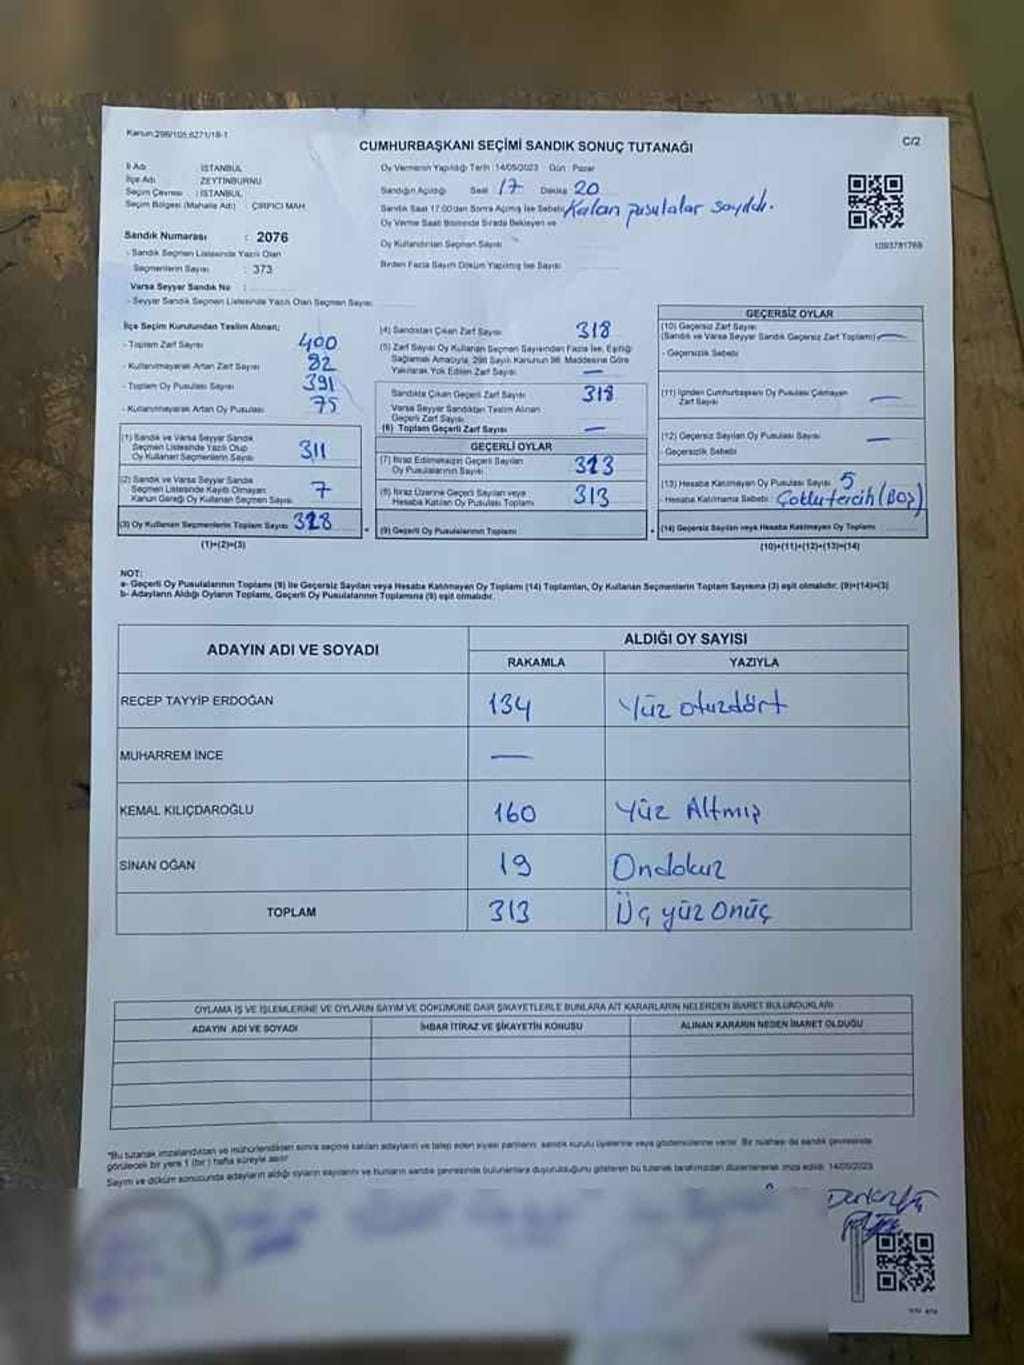 Kanun:298/105,6271/18-1
C/2
CUMHURBAŞKANI SEÇİMİ SANDIK SONUÇ TUTANAĞI
İl Adı : İSTANBUL
İlçe Adı : ZEYTİNBURNU
Seçim Çevresi : İSTANBUL
Seçim Bölgesi (Mahalle Adı) : ÇIRPICI MAH.
Sandık Numarası : 2076
- Sandık Seçmen Listesinde Yazılı Olan
Seçmenlerin Sayısı : 373
Varsa Seyyar Sandık No :
- Seyyar Sandık Seçmen Listesinde Yazılı Olan Seçmen Sayısı
Oy Vermenin Yapıldığı Tarih :14/05/2023 Gün : Pazar
Sandığın Açıldığı Saat 17 Dakika 20
Sandık Saat 17:00'den Sonra Açılmış İse Sebebi Kalan pusulalar sayıldı.
Oy Verme Saati Bitiminde Sırada Bekleyen ve
Oy Kullandırılan Seçmen Sayısı
Birden Fazla Sayım Döküm Yapılmış İse Sayısı
1093781768
İlçe Seçim Kurulundan Teslim Alınan;
- Toplam Zarf Sayısı 400
- Kullanılmayarak Artan Zarf Sayısı 82
- Toplam Oy Pusulası Sayısı 391
- Kullanılmayarak Artan Oy Pusulası 75
(1) Sandık ve Varsa Seyyar Sandık
Seçmen Listesinde Yazılı Olup
Oy Kullanan Seçmenlerin Sayısı 311
(2) Sandık ve Varsa Seyyar Sandık
Seçmen Listesinde Kayıtlı Olmayan
Kanun Gereği Oy Kullanan Seçmen Sayısı 7
(3) Oy Kullanan Seçmenlerin Toplam Sayısı
(1)+(2)=(3)
(4) Sandıktan Çıkan Zarf Sayısı 318
(5) Zarf Sayısı Oy Kullanan Seçmen Sayısından Fazla İse, Eşitliği
Sağlamak Amacıyla, 298 Sayılı Kanunun 98. Maddesine Göre
Yakılarak Yok Edilen Zarf Sayısı —
Sandıkta Çıkan Geçerli Zarf Sayısı 318
Varsa Seyyar Sandıktan Teslim Alınan
Geçerli Zarf Sayısı
(6) Toplam Geçerli Zarf Sayısı —
GEÇERLİ OYLAR
(7) İtiraz Edilmeksizin Geçerli Sayılan
Oy Pusulalarının Sayısı 313
(8) İtiraz Üzerine Geçerli Sayılan veya
Hesaba Katılan Oy Pusulası Toplamı 313
(9) Geçerli Oy Pusulalarının Toplamı
GEÇERSİZ OYLAR
(10) Geçersiz Zarf Sayısı
(Sandık ve Varsa Seyyar Sandık Geçersiz Zarf Toplamı) —
- Geçersizlik Sebebi
(11) İçinden Cumhurbaşkanı Oy Pusulası Çıkmayan
Zarf Sayısı —
(12) Geçersiz Sayılan Oy Pusulası Sayısı —
- Geçersizlik Sebebi
(13) Hesaba Katılmayan Oy Pusulası Sayısı 5
- Hesaba Katılmama Sebebi Çoklu tercih (Boş)
(14) Geçersiz Sayılan veya Hesaba Katılmayan Oy Toplamı
(10)+(11)+(12)+(13)=(14)
NOT:
a- Geçerli Oy Pusulalarının Toplamı (9) ile Geçersiz Sayılan veya Hesaba Katılmayan Oy Toplamı (14) Toplamları, Oy Kullanan Seçmenlerin Toplam Sayısına (3) eşit olmalıdır. (9)+(14)=(3)
b- Adayların Aldığı Oyların Toplamı, Geçerli Oy Pusulalarının Toplamına (9) eşit olmalıdır.
ADAYIN ADI VE SOYADI
ALDIĞI OY SAYISI
RAKAMLA YAZIYLA
RECEP TAYYİP ERDOĞAN 134 Yüz otuzdört
MUHARREM İNCE —
KEMAL KILIÇDAROĞLU 160 Yüz Altmış
SİNAN OĞAN 19 Ondokuz
TOPLAM 313 Üç yüz onüç
OYLAMA İŞ VE İŞLEMLERİNE VE OYLARIN SAYIM VE DÖKÜMÜNE DAİR ŞİKAYETLERLE BUNLARA AİT KARARLARIN NELERDEN İBARET BULUNDUKLARI
ADAYIN ADI VE SOYADI İHBAR İTİRAZ VE ŞİKAYETİN KONUSU ALINAN KARARIN NEDEN İBARET OLDUĞU
"Bu tutanak imzalandıktan ve mühürlendikten sonra seçime katılan adayların ve talep eden siyasi partilerin sandık kurulu üyelerine veya gözlemcilerine verilir. Bir nüshası da sandık çevresinde
görülecek bir yere 1 (bir) hafta süreyle asılır
Sayım ve döküm sonucunda adayların aldığı oyların sayılarını ve bunların sandık çevresinde bulunanlara duyurulduğunu gösteren bu tutanak tarafımızdan düzenlenerek imza edildi. 14/05/2023